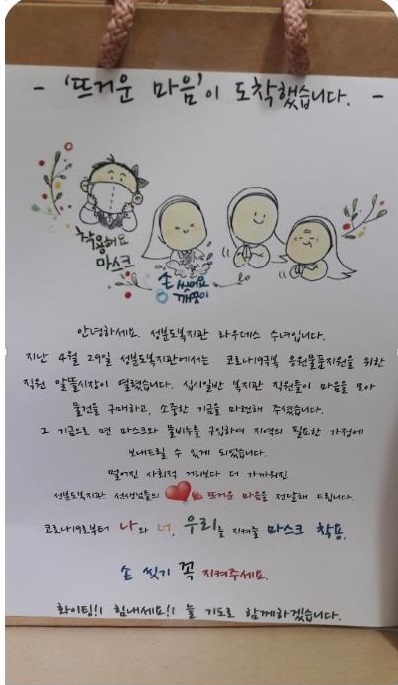 - '뜨거운 마음'이 도착했습니다. -
착용해요
마스크
손 씻어요
깨끗이
안녕하세요. 성분도복지관 라우데스 수녀입니다.
지난 4월 29일 성분도복지관에서는 코로나19극복 응원물품지원을 위한
직원 알뜰시장이 열렸습니다. 십시일반 복지관 직원들이 마음을 모아
물건을 구매하고, 소중한 기금을 마련해 주셨습니다.
그 기금으로 면 마스크와 물비누를 구입하여 지역의 필요한 가정에
보내드릴 수 있게 되었습니다.
멀어진 사회적 거리보다 더 가까워진
성분도복지관 선생님들의 뜨거운 마음을 전달해 드립니다.
코로나19로부터 나와 너, 우리를 지켜줄 마스크 착용,
손 씻기 꼭 지켜주세요.
화이팅!! 힘내세요!! 늘 기도로 함께하겠습니다.